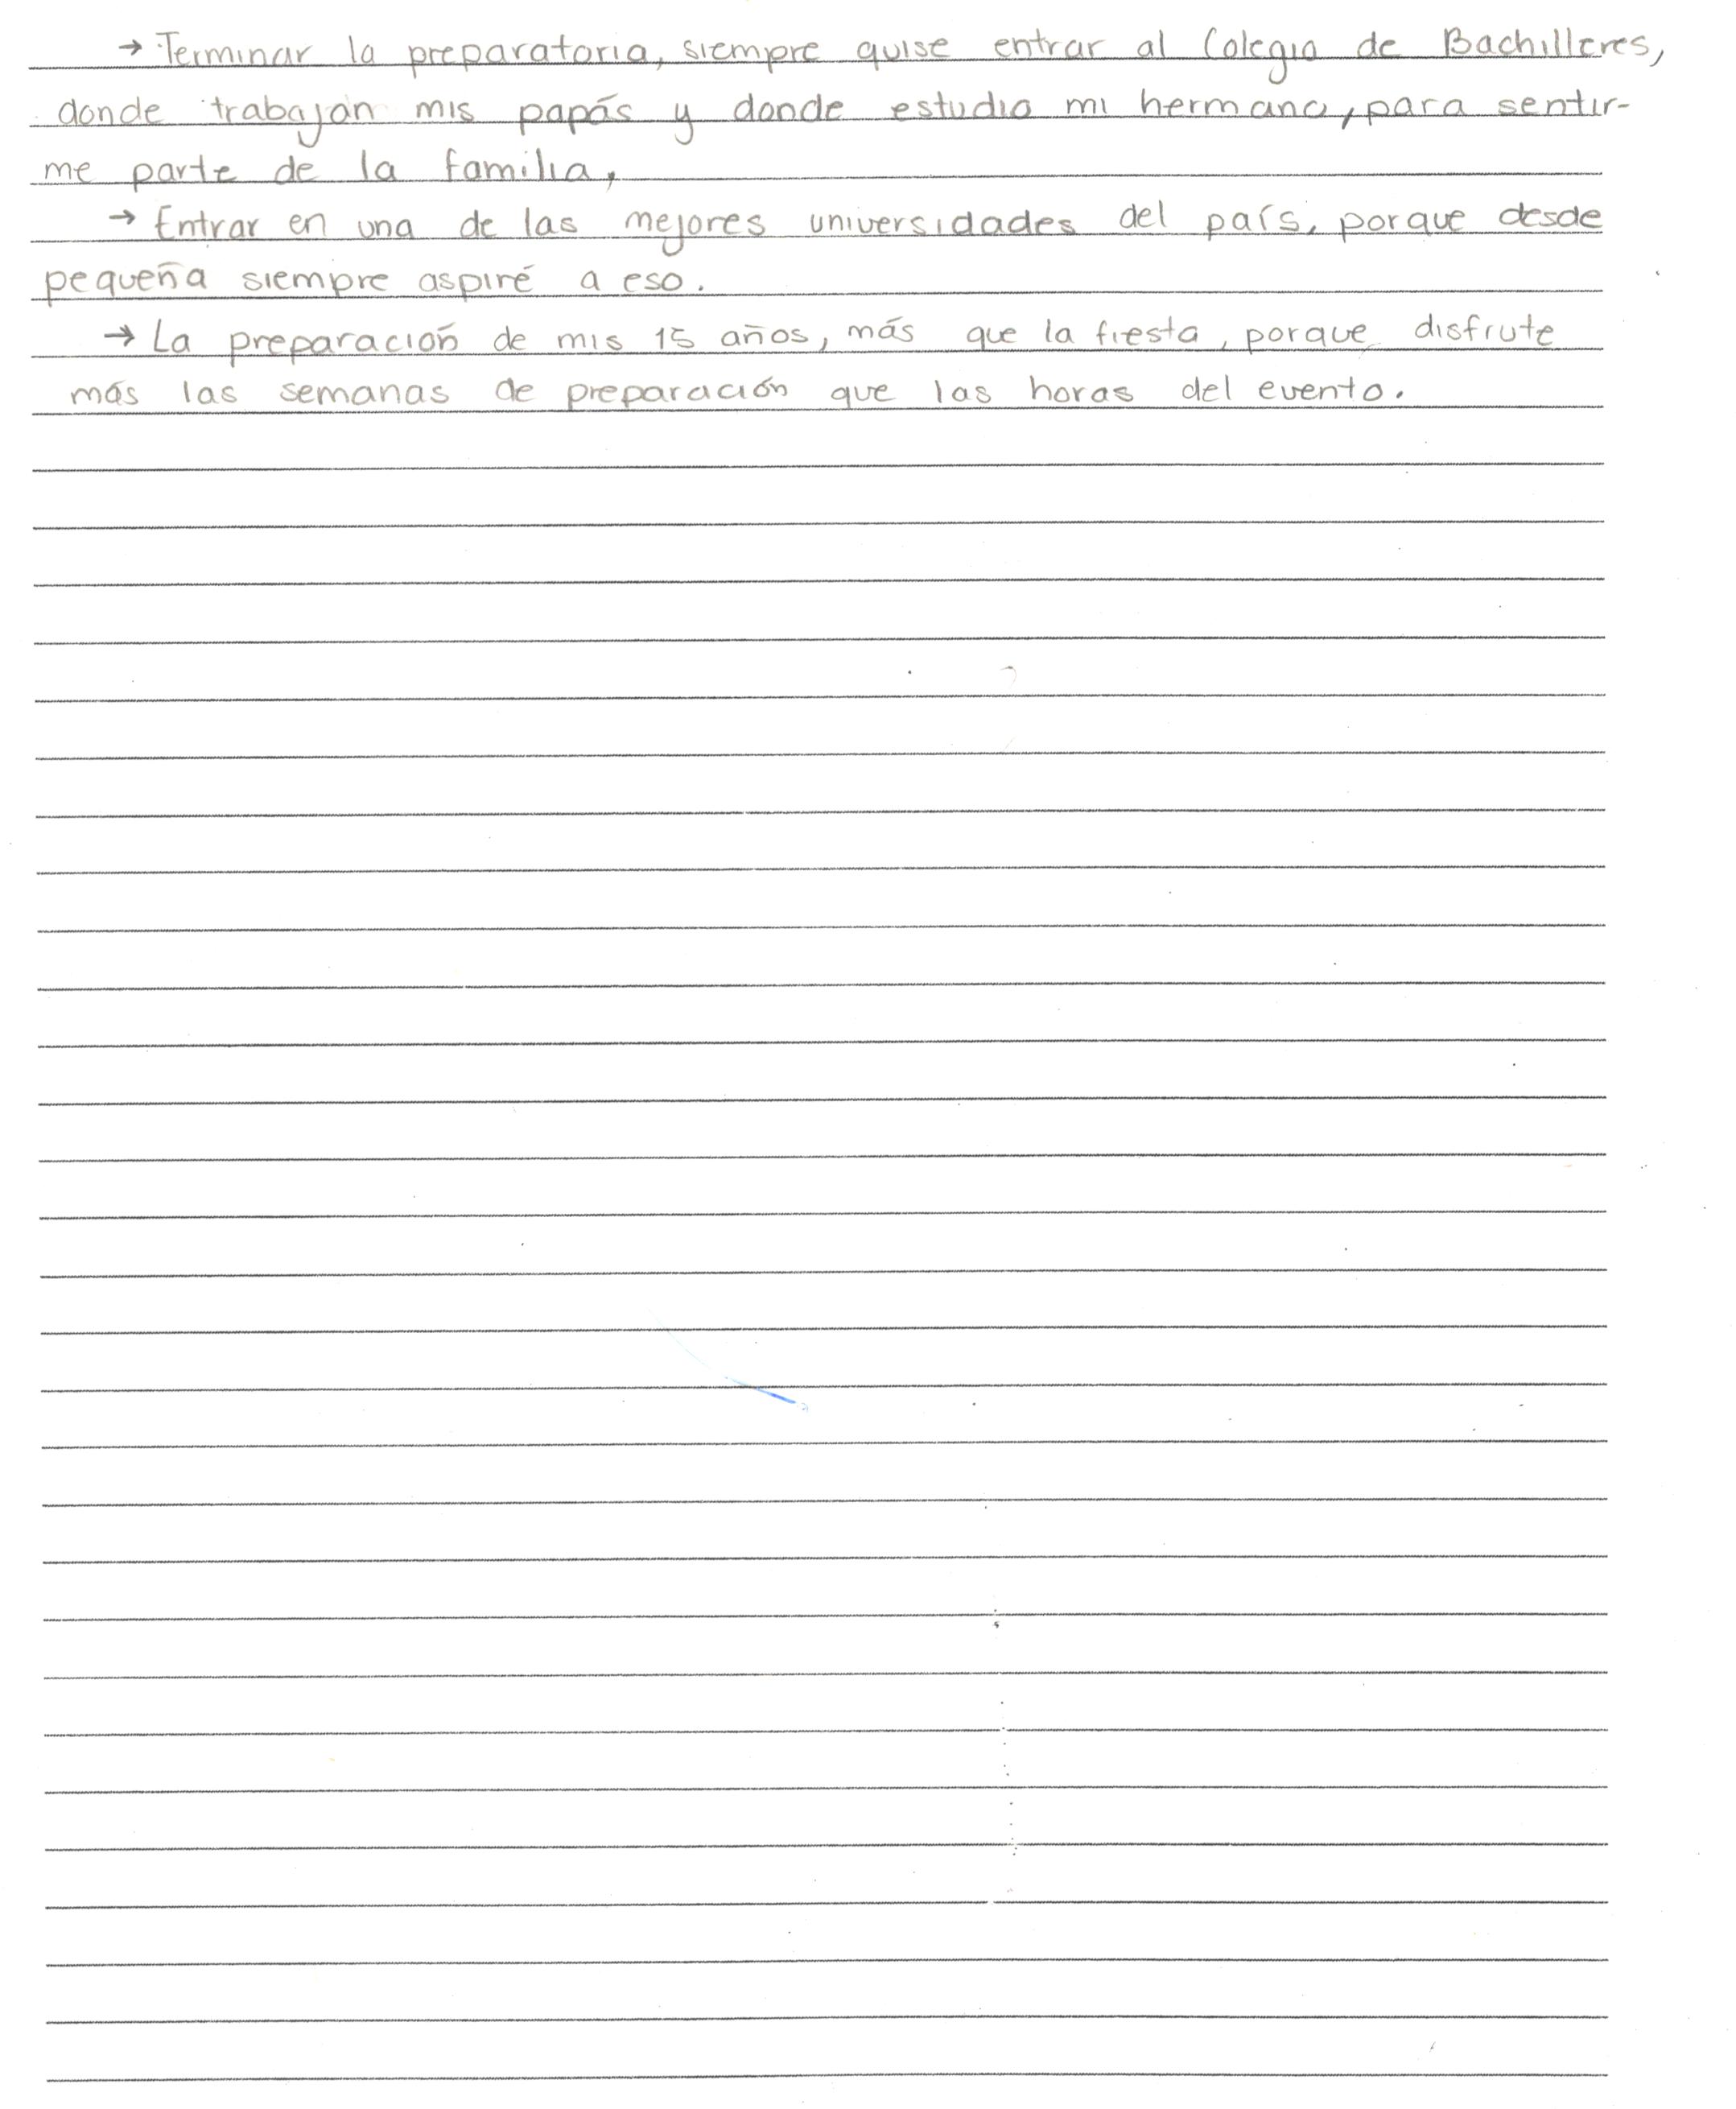 → Terminar la preparatoria, siempre quise entrar al Colegio de Bachilleres,
donde trabajan mis papás y donde estudio mi hermana, para sentir-
me parte de la familia,
→ Entrar en una de las mejores universidades del país, porque desde
pequeña siempre aspiré a eso.
→ La preparación de mis 15 años, más que la fiesta, porque disfrute
más las semanas de preparación que las horas del evento.